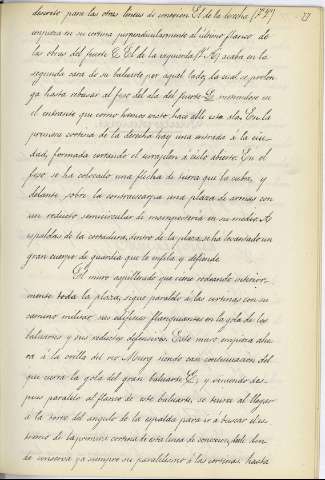 descrito para las otras líneas de conexion. El de la derecha (P. P.)
27
empieza en su cortina perpendicularmente al último flanco de
las obras del fuerte C. El de la izquierda (P. N.) acaba en la
segunda cara de su baluarte por aquel lado, la cual se prolon
ga hasta rebasar el foso del ala del fuerte E, metiendose en
el entrante que como hemos visto hace alli esta ala. En la
primera cortina de la derecha hay una entrada á la ciu-
dad, formada cortando el terraplen á cielo abierto. En el
foso se ha colocado una flecha de tierra que la cubre, y
delante sobre la contraescarpa una plaza de armas con
un reducto semicircular de mamposteria en su medio. A
espaldas de la cortadura, dentro de la plaza, se ha levantado un
gran cuerpo de guardia que la enfila y defiende.
El muro aspillerado que cierra rodeando interior-
mente toda la plaza, sigue paralelo á las cortinas con su
camino militar, sus edificios flanqueantes en la gola de los
baluartes y sus reductos defensivos. Este muro empieza aho
ra á la orilla del rio Murg siendo continuacion del
que cierra la gola del gran baluarte E, y viniendo des-
pues paralelo al flanco de este baluarte, se tuerce al llegar
á la torre del angulo de la espalda para ir á buscar el es-
tremo de la primera cortina de esta linea de conexion, desde don-
de conserva ya siempre su paralelismo á las cortinas hasta